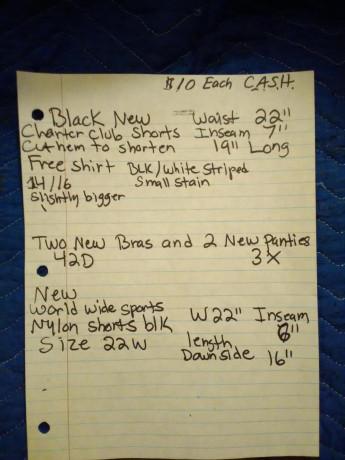 $10 Each C.A.S.H.
Black New Waist 22"
Charter Club Shorts Inseam 7"
Cut hem to shorten 19" Long
Free Shirt BLK/White Striped
14/16 Small Stain
Slightly bigger
Two New Bras and 2 New Panties
42D 3X
New
World Wide Sports
Nylon shorts blk W22" Inseam
Size 22W length 6"
Down side 16"